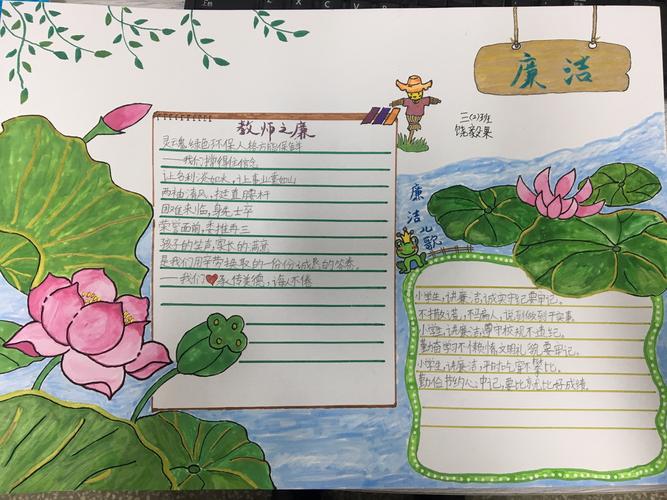 廉洁
三(2)班
饶毅果
教师之廉
灵魂绿色环保人格方能保鲜
——我们撑得住信念
让名利淡如水,让事业重如山
两袖清风,挺直腰杆
困难来临,身先士卒
荣誉面前,委推再三
孩子的笑声,家长的满意
是我们用辛劳换取的一份份诚恳的答卷。
——我们❤承传美德,诲人不倦
廉洁儿歌
小学生,讲廉洁,诚实书记要牢记。
不撒谎,不骗人,说到做到干实事。
小学生,讲廉洁,遵守校规不违纪。
勤奋学习不懒惰,文明礼貌要牢记。
小学生,讲廉洁,平时吃穿不攀比。
勤俭节约心中记,要比就比好成绩。